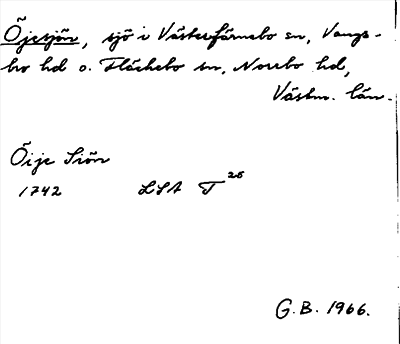 Öjesjön, sjö i Västerfärnebo sn, Vangs-
bro hd o. Fläckebo sn, Norrbo hd,
Västm. län.
Öije Siön
1742 LSA T 26
G.B. 1966.